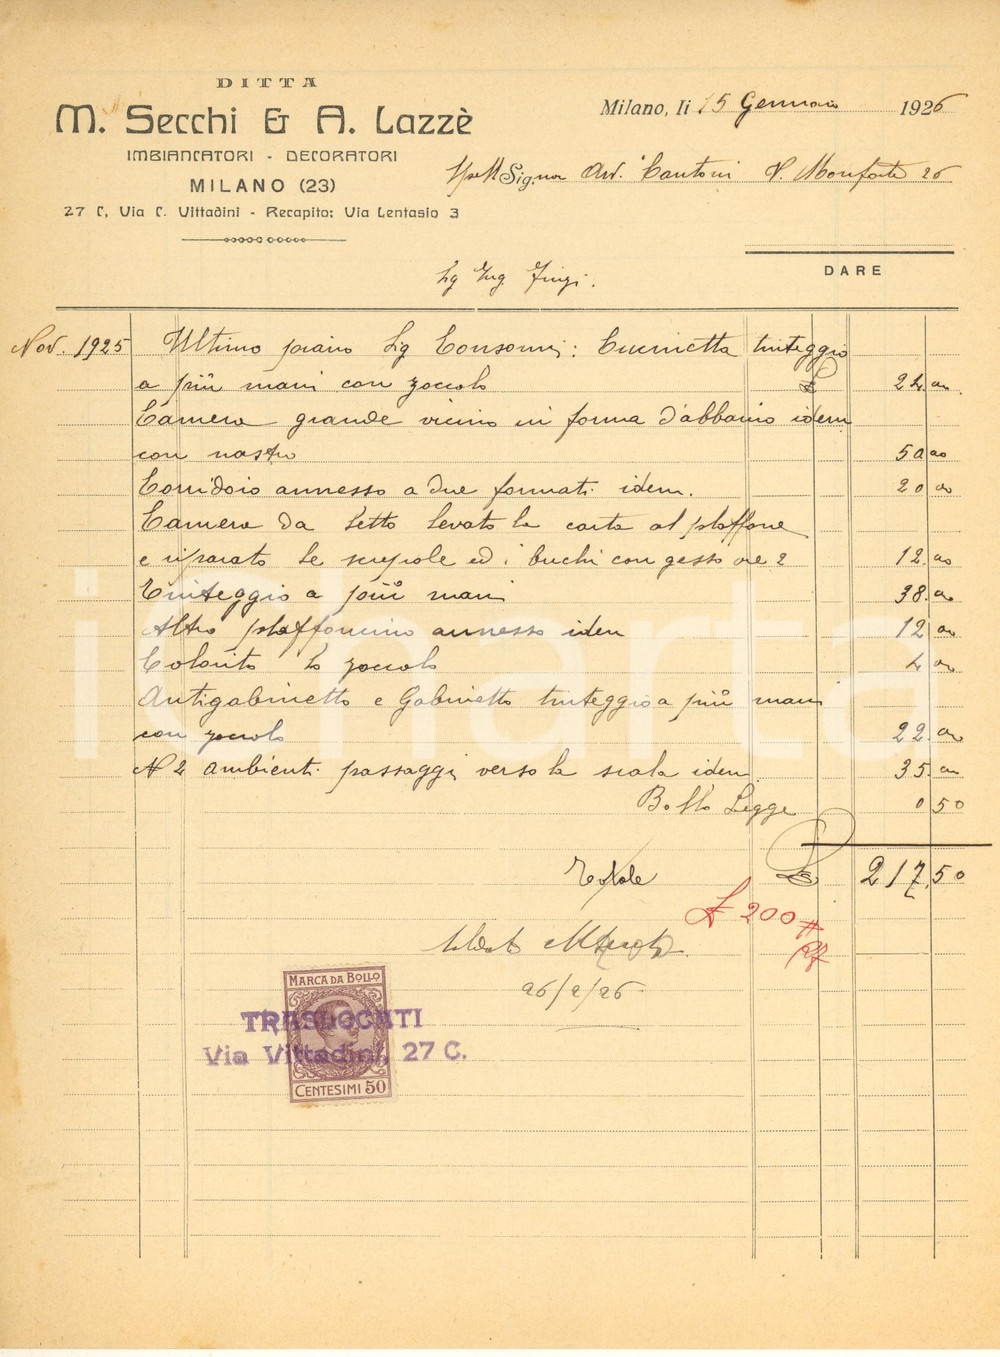 DITTA
M. Secchi & A. Lazzè
IMBIANCATORI - DECORATORI
MILANO (23)
27 C, Via C. Vittadini - Recapito: Via Lentasio 3
Milano, li 15 Gennaio 1926
Spett Signor Avv. Cantoni V. Monforte 26
DARE
Sig Ing Finzi.
Nov. 1925 Ultimo piano Sig Consonni: Cucinetta tinteggio
a più mani con zoccolo £ 24.00
Camera grande vicino in forma d'abbaino idem
con nastro 50 00
Corridoio annesso a due formati idem. 20 00
Camera da letto levato la carta al plaffone
e riparato le screpole ed i buchi con gesso ore 2 12.00
Tinteggio a più mani 38.00
Altro plaffoncino annesso idem 12 00
Colorito lo zoccolo 4 00
Antigabinetto e Gabinetto tinteggio a più mani
con zoccolo 22.00
N 2 ambienti passaggi verso la scala idem 35.00
Bollo Legge 0 50
Totale £ 217,50
£ 200 #
Saldato
26/2/26
MARCA DA BOLLO
TRASLOCATI
Via Vittadini, 27 C.
CENTESIMI 50
iCharta